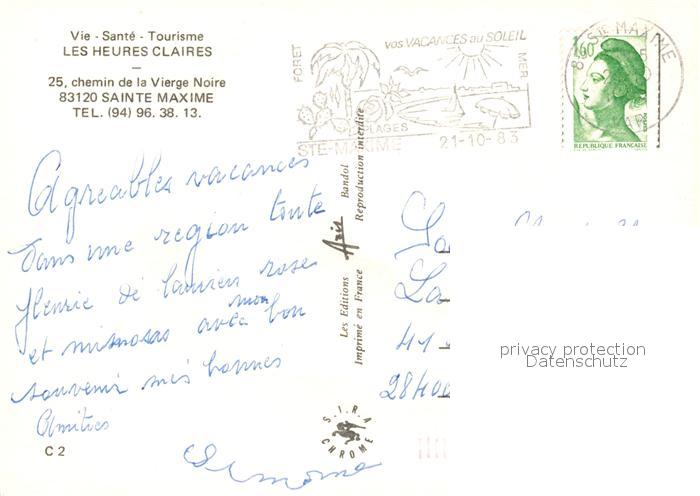 Vie - Santé - Tourisme
LES HEURES CLAIRES
25, chemin de la Vierge Noire
83120 SAINTE MAXIME
TEL. (94) 96. 38. 13.
FORET
vos VACANCES au SOLEIL
MER
PLAGES
STE-MAXIME 21-10-83
83 STE MAXIME
1,60
REPUBLIQUE FRANÇAISE
Agreables vacances
dans une region toute
fleurie de laurier rose
et mimosas avec mon bon
souvenir mes bonnes
Amitiés
Simone
C 2
Les Editions Aris Bandol
Imprimé en France Reproduction interdite
S.I.R.A.
CHROME
La
41
28400
privacy protection
Datenschutz